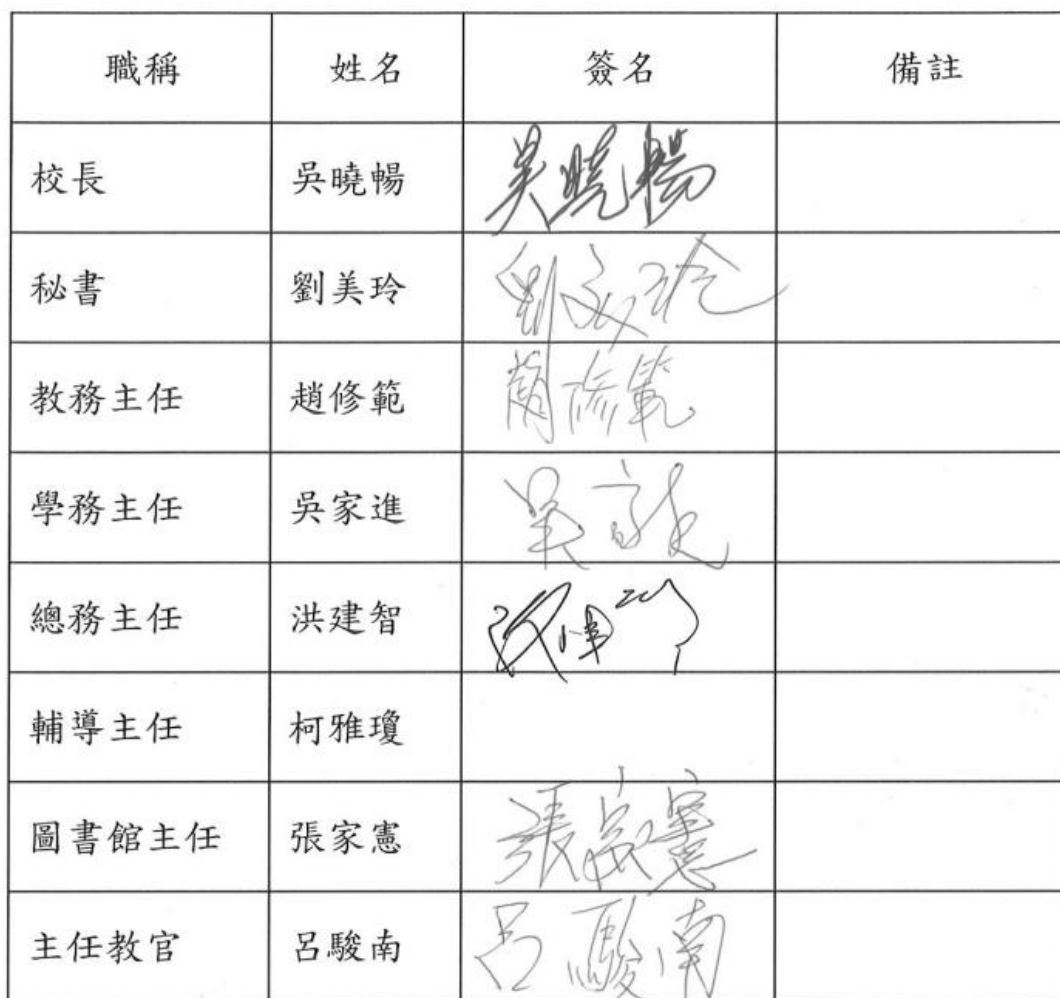 職稱 姓名 簽名 備註
校長 吳曉暢 吳曉暢
秘書 劉美玲 劉美玲
教務主任 趙修範 趙修範
學務主任 吳家進 吳家進
總務主任 洪建智
輔導主任 柯雅瓊
圖書館主任 張家憲 張家憲
主任教官 呂駿南 呂駿南